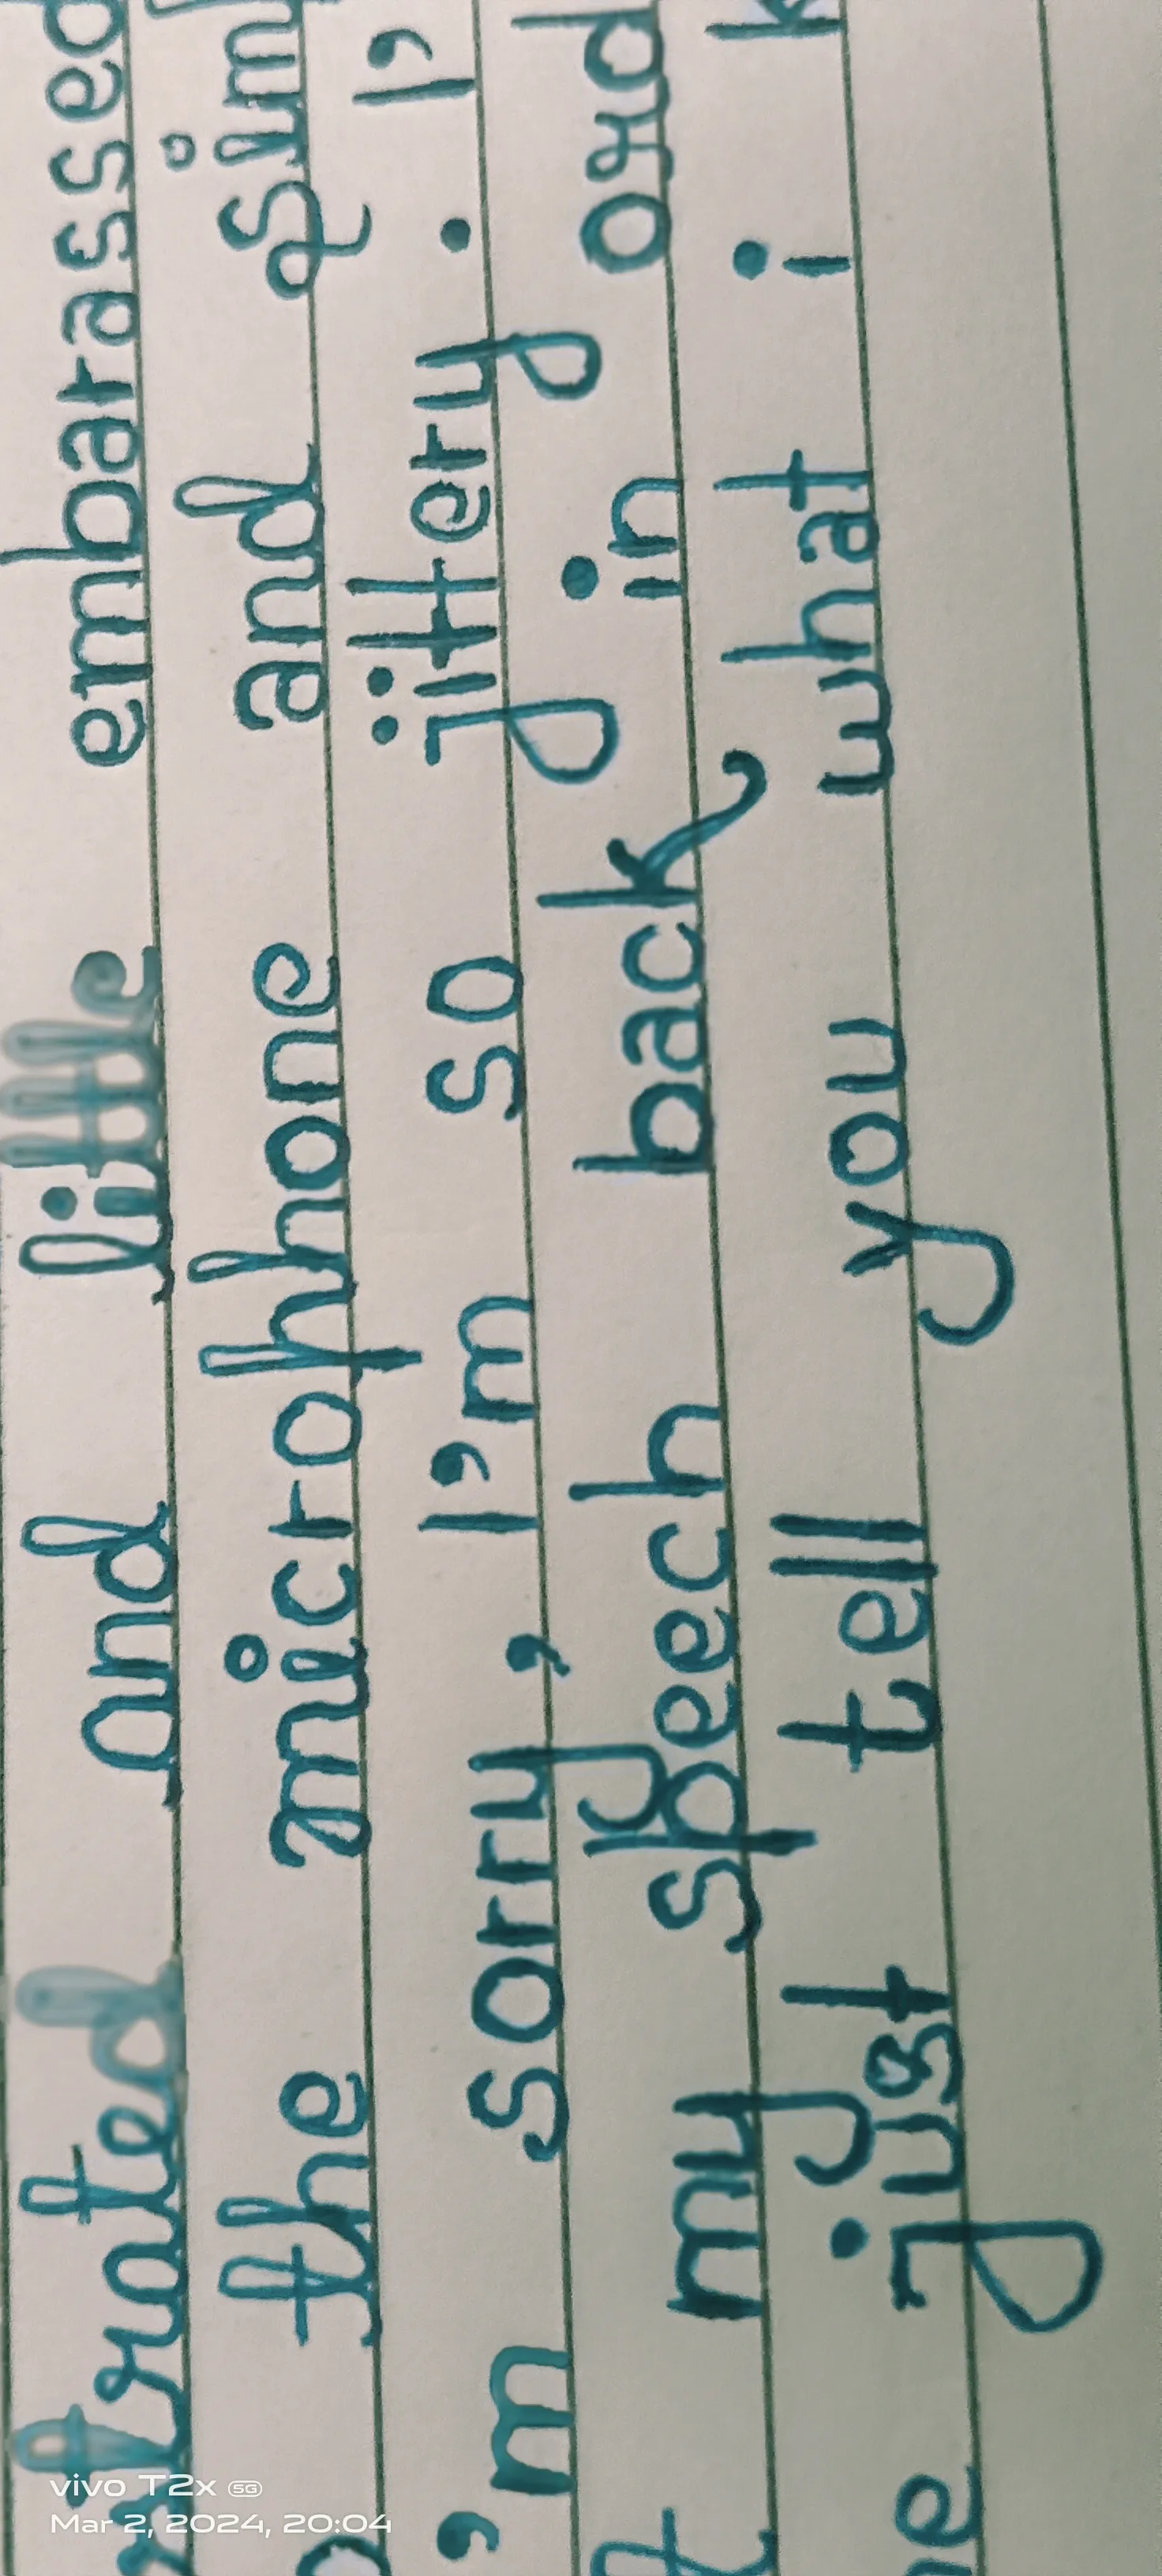 strated and little embarassed
the microphone and sim
'm sorry, I'm so jittery. I'
t my speech back in ord
just tell you what i k
vivo T2x 5G
Mar 2, 2024, 20:04